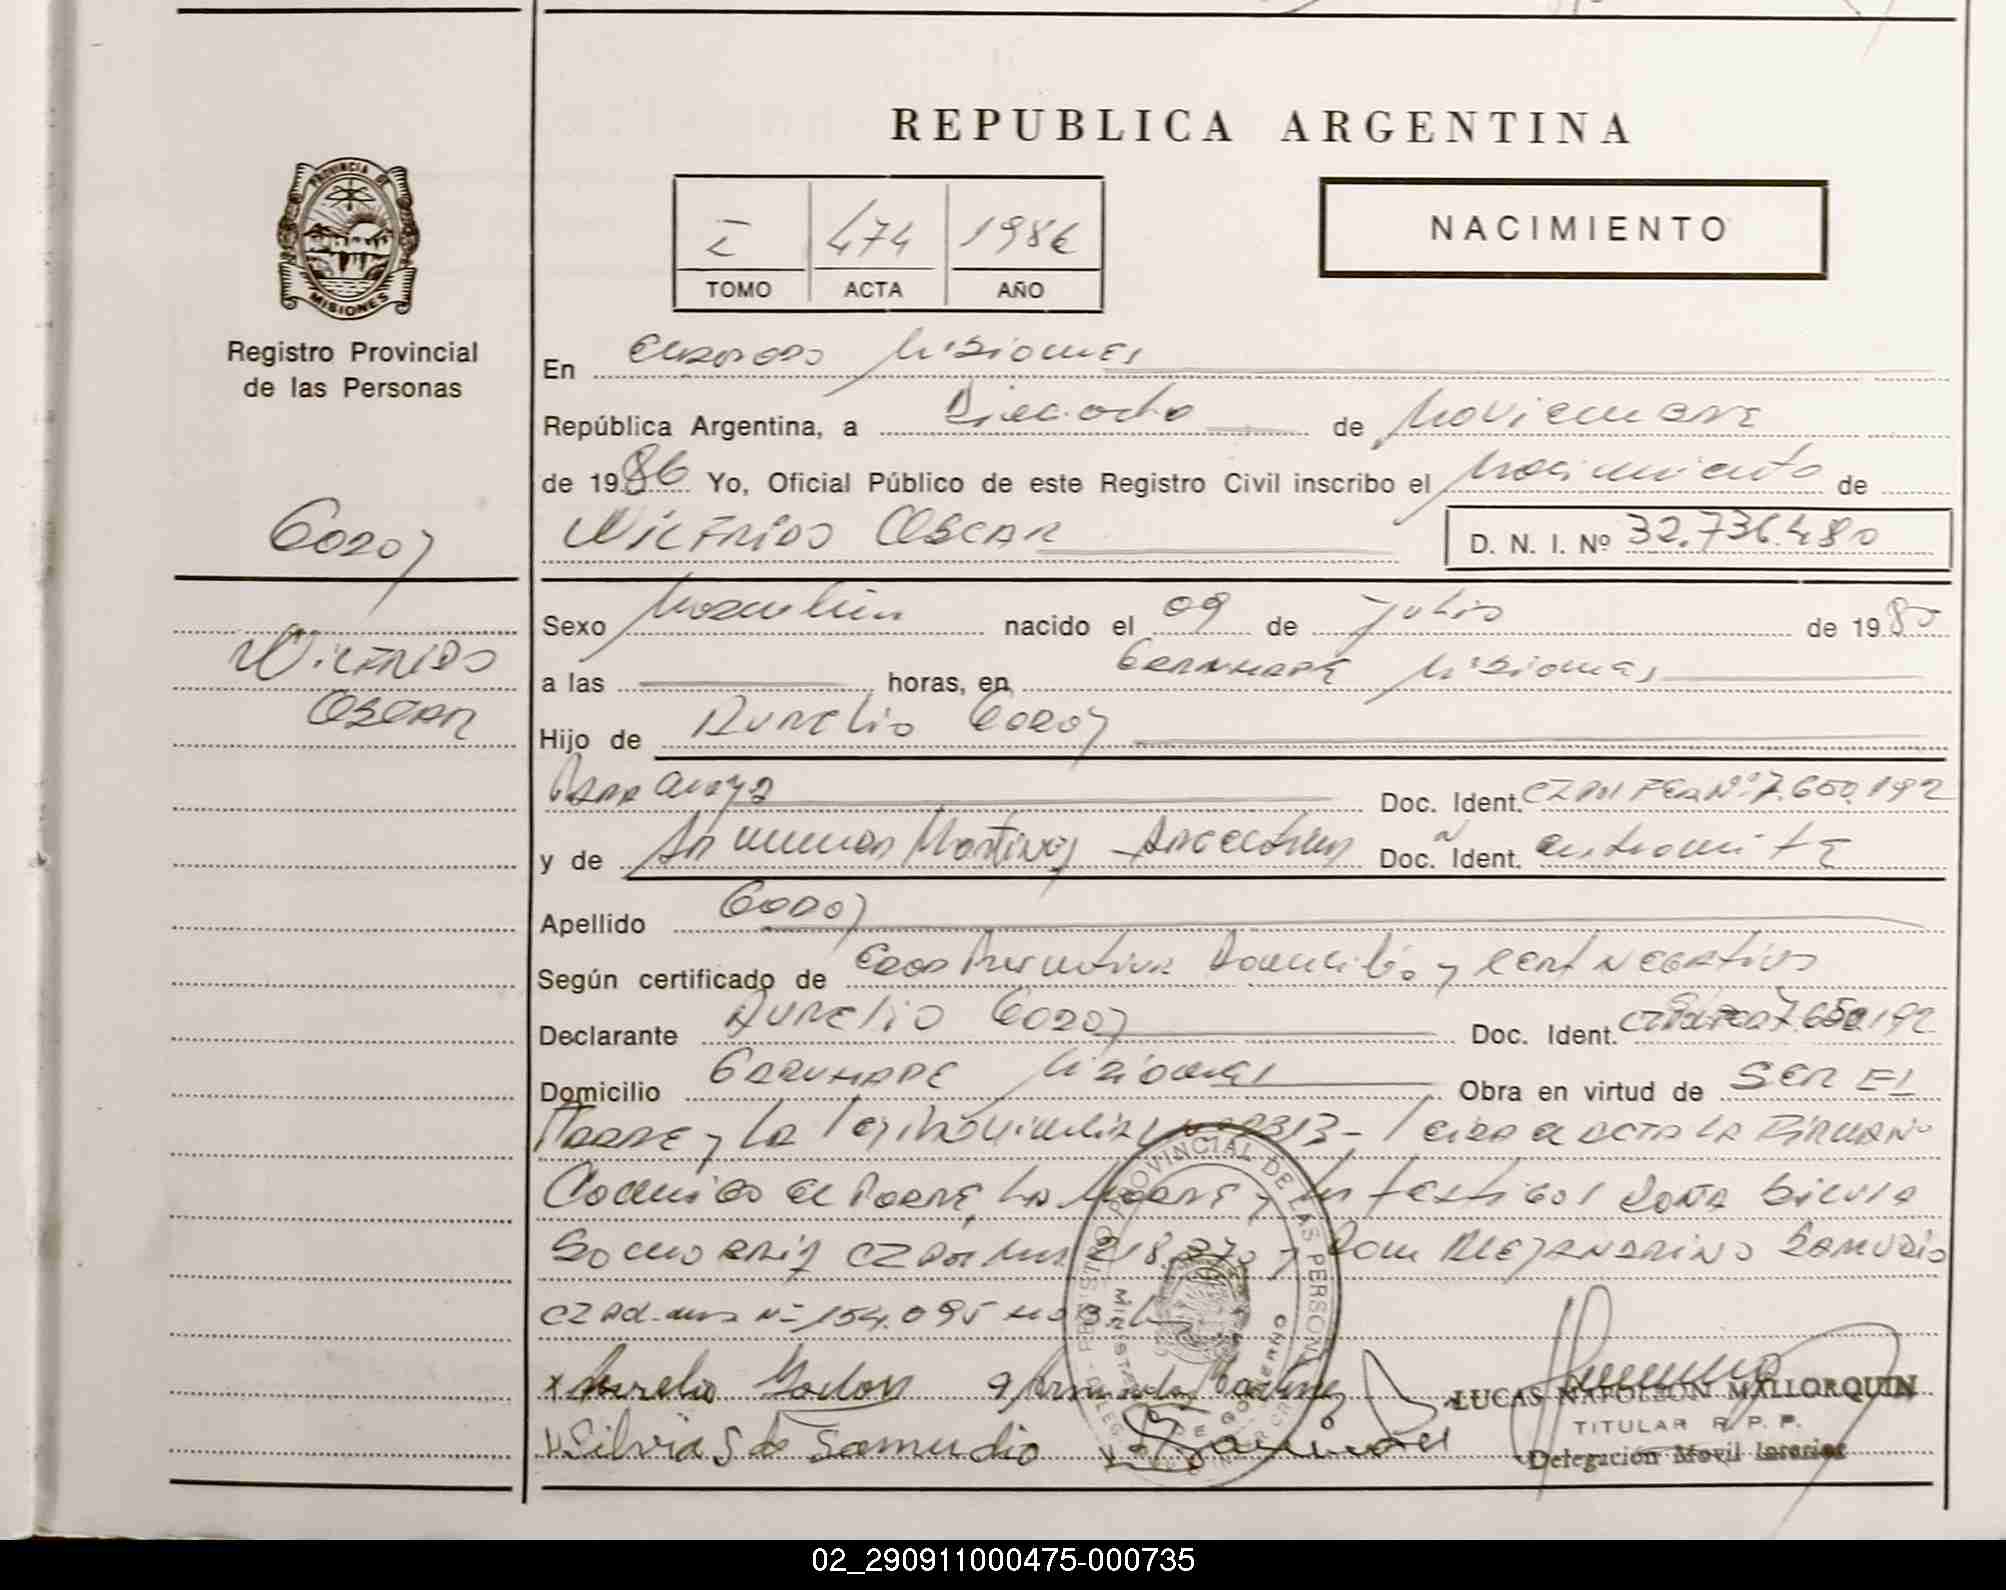 REPUBLICA ARGENTINA
PROVINCIA DE
MISIONES
Registro Provincial
de las Personas
I 474 1986
TOMO ACTA AÑO
NACIMIENTO
En Eldorado Misiones
República Argentina, a Dieciocho de Noviembre
de 1986 Yo, Oficial Público de este Registro Civil inscribo el Nacimiento de
WILFRIDO OSCAR D. N. I. Nº 32.736.480
GODOY
WILFRIDO
OSCAR
Sexo Masculino nacido el 09 de Julio de 198
a las horas, en Garuhape Misiones
Hijo de Aurelio Godoy
Paraguaya Doc. Ident. Nº 7.650.192
y de Martinez Argentina Doc. Ident.
Apellido Godoy
Según certificado de Edad Presuntiva Domicilio y Cert Negativo
Declarante Aurelio Godoy Doc. Ident. 7.650.192
Domicilio Garuhape Misiones Obra en virtud de SER EL
Padre y La Ley 22313- Leida el acta LA FIRMAN
Conmigo el Padre, La Madre y los testigos Doña Silvia
218.370 y Don Alejandrino Samudio
Nº 154.095
x Aurelio Godoy
Silvia S de Samudio
REGISTRO PROVINCIAL DE LAS PERSONAS
MINISTERIO DE GOBIERNO
LUCAS NAPOLEON MALLORQUIN
TITULAR R. P. P.
Delegación Movil
02_290911000475-000735